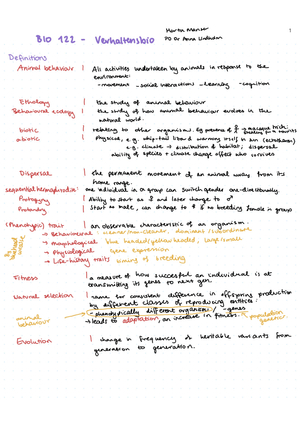 Marta Manser
BIO 122 - Verhaltensbio PD Dr Anna Lindholm
1
Definitions
Animal behaviour | All activities undertaken by animals in response to the
environment:
-movement -social interactions -learning -cognition
Ethology | the study of animal behaviour
Behavioural ecology | the study of how animal behaviour evolves in the
natural world.
biotic | relating to other organisms. Eg presence of ♀
abiotic | Physical, e.g. whiptail lizard warming itself in sun (ectotherm)
e.g. climate → distribution & habitat; dispersal
ability of species + climate change affect who survives
Dispersal | the permanent movement of an animal away from its
home range.
sequential hermaphrodite | one individual in a group can switch gender one-directionally
Protogyny | Ability to start as ♀ and later change to ♂
Protandry | Start as male, can change to ♀ (breeding female in group)
(Phenotypic) trait | an observable characteristic of an organism.
→ Behavioural dominant/subordinate
→ morphological blue headed/yellow headed, large/small
→ Physiological gene expression
→ Life-history traits timing of breeding
Fitness | a measure of how successful an individual is at
transmitting its genes to next gen.
Natural selection | name for consistent difference in offspring production
by different classes of reproducing entities:
- phenotypically different organisms / -genes
→ leads to adaptation, an increase in fitness.
animal
behaviour
population
genetics
Evolution | change in frequency of heritable variants from
generation to generation.